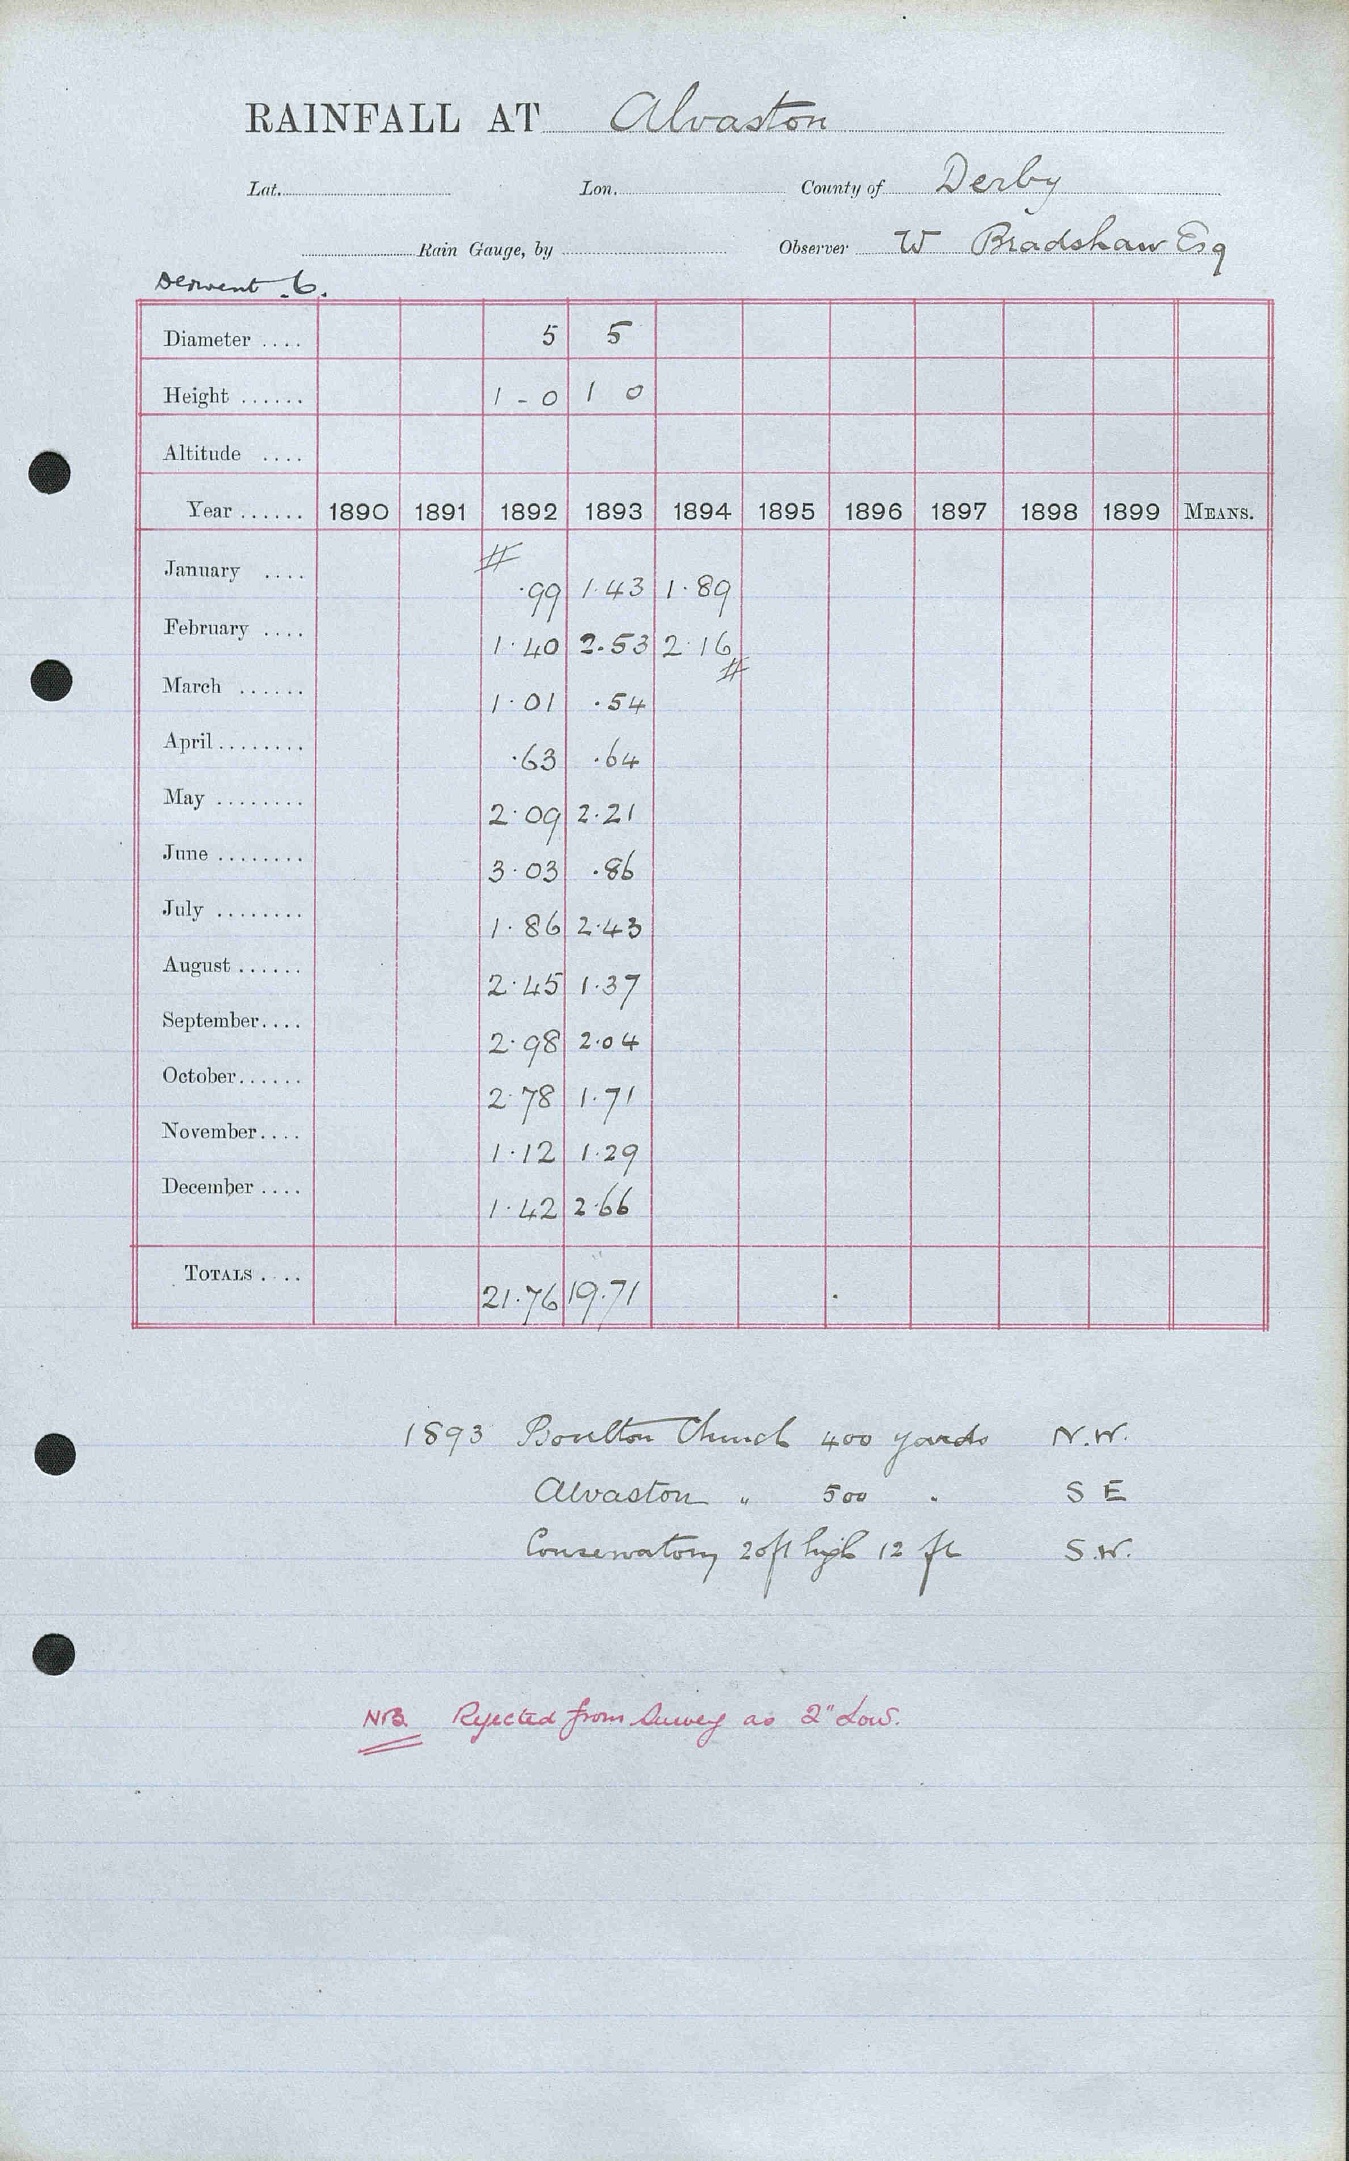 RAINFALL AT Alvaston
Lat. Lon. County of Derby
Rain Gauge, by Observer W Bradshaw Esq
Derwent .6.
Diameter .... 5 5
Height ...... 1 - 0 1 0
Altitude ....
Year ...... 1890 1891 1892 1893 1894 1895 1896 1897 1898 1899 MEANS.
#
January .... .99 1.43 1.89
February .... 1.40 2.53 2.16
#
March ...... 1.01 .54
April ........ .63 .64
May ........ 2.09 2.21
June ........ 3.03 .86
July ........ 1.86 2.43
August ...... 2.45 1.37
September.... 2.98 2.04
October...... 2.78 1.71
November.... 1.12 1.29
December .... 1.42 2.66
TOTALS .... 21.76 19.71
1893 Boulton Church 400 yards N.W.
Alvaston " 500 " S E
Conservatory 20ft high 12 ft S.W.
NB. Rejected from Survey as 2" Low.